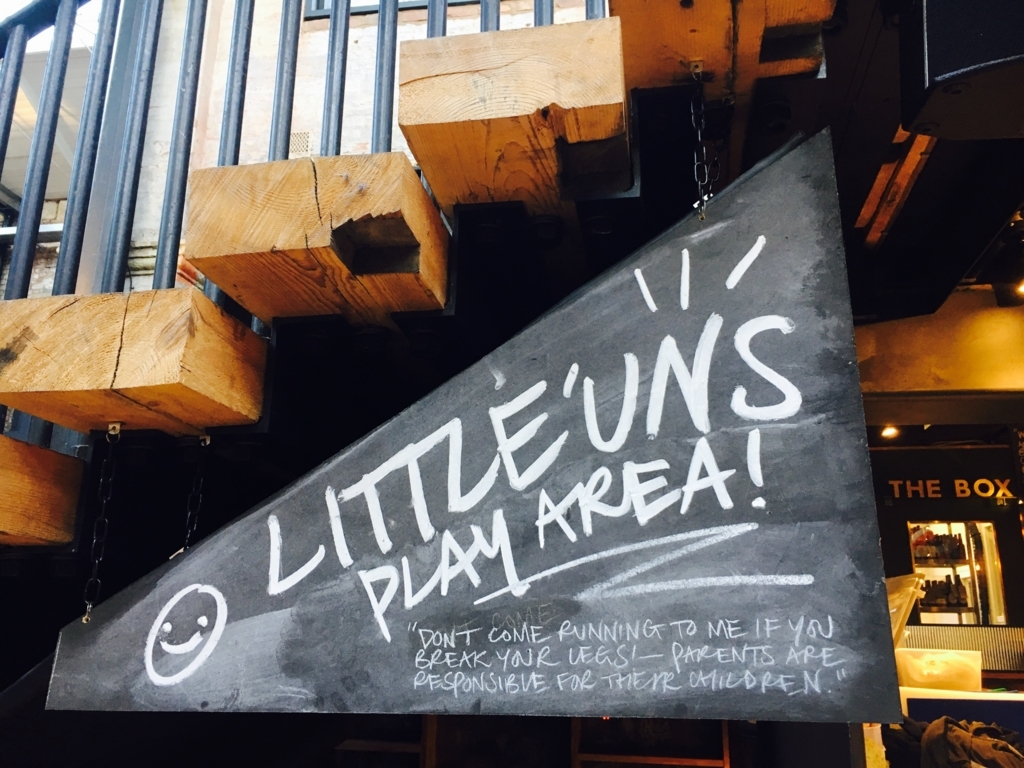 LITTLE 'UNS
PLAY AREA!
"DON'T COME RUNNING TO ME IF YOU
BREAK YOUR LEGS! — PARENTS ARE
RESPONSIBLE FOR THEIR CHILDREN."
THE BOX